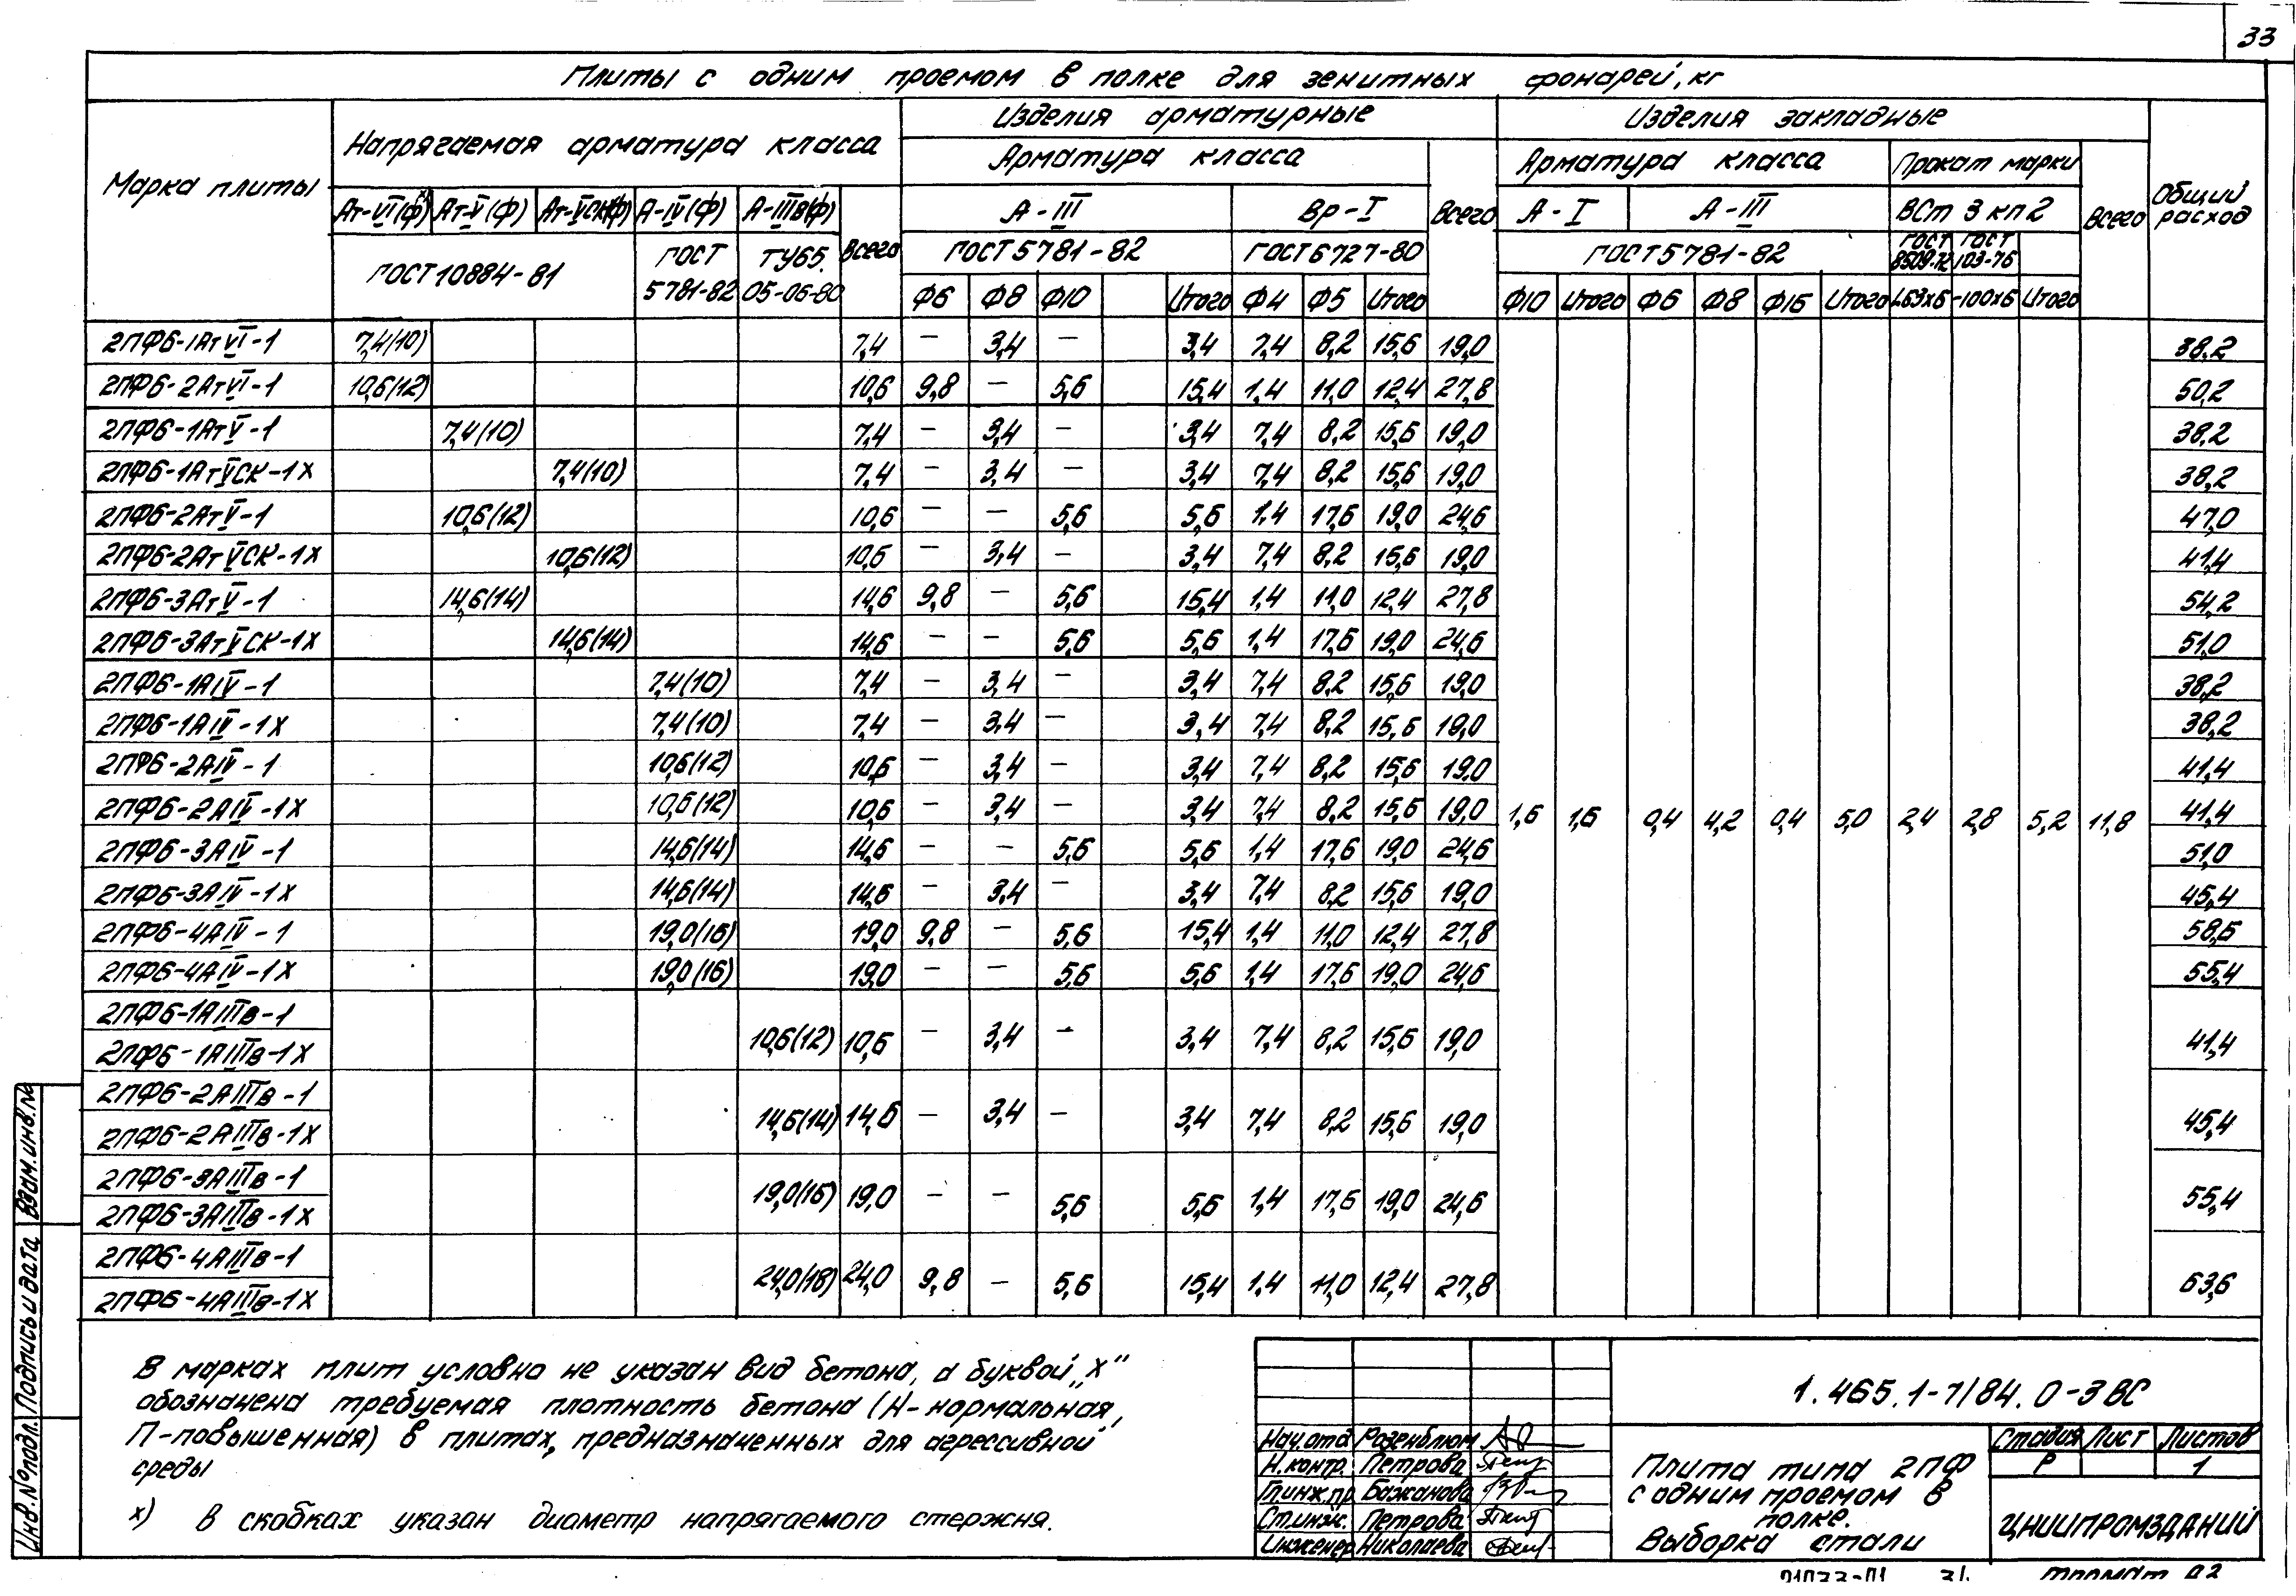 33
Плиты с одним проемом в полке для зенитных фонарей, кг
Марка плиты | Напрягаемая арматура класса | Изделия арматурные | Изделия закладные | Общий расход
Арматура класса | Всего | Арматура класса | Прокат марки | Всего
Ат-VI(ф)ˣ | Ат-V(ф) | Ат-VСК(ф) | А-IV(ф) | А-IIIв(ф) | Всего | А-III | Вр-I | А-I | А-III | ВСт 3 кп2
ГОСТ 10884-81 | ГОСТ 5781-82 | ТУ65. 05-06-80 | ГОСТ 5781-82 | ГОСТ 6727-80 | ГОСТ 5781-82 | ГОСТ 8509-72 | ГОСТ 103-76
Ф6 | Ф8 | Ф10 | Итого | Ф4 | Ф5 | Итого | Ф10 | Итого | Ф6 | Ф8 | Ф16 | Итого | L63х6 | -100х6 | Итого
2ПФ6-1АтVI-1 | 7,4(10) | 7,4 | – | 3,4 | – | 3,4 | 7,4 | 8,2 | 15,6 | 19,0 | 38,2
2ПФ6-2АтVI-1 | 10,6(12) | 10,6 | 9,8 | – | 5,6 | 15,4 | 1,4 | 11,0 | 12,4 | 27,8 | 50,2
2ПФ6-1АтV-1 | 7,4(10) | 7,4 | – | 3,4 | – | 3,4 | 7,4 | 8,2 | 15,6 | 19,0 | 38,2
2ПФ6-1АтVСК-1Х | 7,4(10) | 7,4 | – | 3,4 | – | 3,4 | 7,4 | 8,2 | 15,6 | 19,0 | 38,2
2ПФ6-2АтV-1 | 10,6(12) | 10,6 | – | – | 5,6 | 5,6 | 1,4 | 17,6 | 19,0 | 24,6 | 47,0
2ПФ6-2АтVСК-1Х | 10,6(12) | 10,6 | – | 3,4 | – | 3,4 | 7,4 | 8,2 | 15,6 | 19,0 | 41,4
2ПФ6-3АтV-1 | 14,6(14) | 14,6 | 9,8 | – | 5,6 | 15,4 | 1,4 | 11,0 | 12,4 | 27,8 | 54,2
2ПФ6-3АтVСК-1Х | 14,6(14) | 14,6 | – | – | 5,6 | 5,6 | 1,4 | 17,6 | 19,0 | 24,6 | 51,0
2ПФ6-1АIV-1 | 7,4(10) | 7,4 | – | 3,4 | – | 3,4 | 7,4 | 8,2 | 15,6 | 19,0 | 38,2
2ПФ6-1АIV-1Х | 7,4(10) | 7,4 | – | 3,4 | – | 3,4 | 7,4 | 8,2 | 15,6 | 19,0 | 38,2
2ПФ6-2АIV-1 | 10,6(12) | 10,6 | – | 3,4 | – | 3,4 | 7,4 | 8,2 | 15,6 | 19,0 | 41,4
2ПФ6-2АIV-1Х | 10,6(12) | 10,6 | – | 3,4 | – | 3,4 | 7,4 | 8,2 | 15,6 | 19,0 | 1,6 | 1,6 | 0,4 | 4,2 | 0,4 | 5,0 | 2,4 | 2,8 | 5,2 | 11,8 | 41,4
2ПФ6-3АIV-1 | 14,6(14) | 14,6 | – | – | 5,6 | 5,6 | 1,4 | 17,6 | 19,0 | 24,6 | 51,0
2ПФ6-3АIV-1Х | 14,6(14) | 14,6 | – | 3,4 | – | 3,4 | 7,4 | 8,2 | 15,6 | 19,0 | 45,4
2ПФ6-4АIV-1 | 19,0(16) | 19,0 | 9,8 | – | 5,6 | 15,4 | 1,4 | 11,0 | 12,4 | 27,8 | 58,6
2ПФ6-4АIV-1Х | 19,0(16) | 19,0 | – | – | 5,6 | 5,6 | 1,4 | 17,6 | 19,0 | 24,6 | 55,4
2ПФ6-1АIIIв-1
2ПФ6-1АIIIв-1Х | 10,6(12) | 10,6 | – | 3,4 | – | 3,4 | 7,4 | 8,2 | 15,6 | 19,0 | 41,4
2ПФ6-2АIIIв-1
2ПФ6-2АIIIв-1Х | 14,6(14) | 14,6 | – | 3,4 | – | 3,4 | 7,4 | 8,2 | 15,6 | 19,0 | 45,4
2ПФ6-3АIIIв-1
2ПФ6-3АIIIв-1Х | 19,0(16) | 19,0 | – | – | 5,6 | 5,6 | 1,4 | 17,6 | 19,0 | 24,6 | 55,4
2ПФ6-4АIIIв-1
2ПФ6-4АIIIв-1Х | 24,0(18) | 24,0 | 9,8 | – | 5,6 | 15,4 | 1,4 | 11,0 | 12,4 | 27,8 | 63,6
В марках плит условно не указан вид бетона, а буквой „х"
обозначена требуемая плотность бетона (Н-нормальная,
П-повышенная) в плитах, предназначенных для агрессивной
среды
х) В скобках указан диаметр напрягаемого стержня.
Инв.№подл. Подпись и дата Взам.инв.№
1.465.1-7/84.0-3ВС
Нач.отд Розенблюм
Н.контр. Петрова
Гл.инж.пр Бажанова
Ст.инж. Петрова
Инженер Николаева
Плита типа 2ПФ
с одним проемом в
полке.
Выборка стали
Стадия Лист Листов
Р 1
ЦНИИПРОМЗДАНИЙ
формат А2